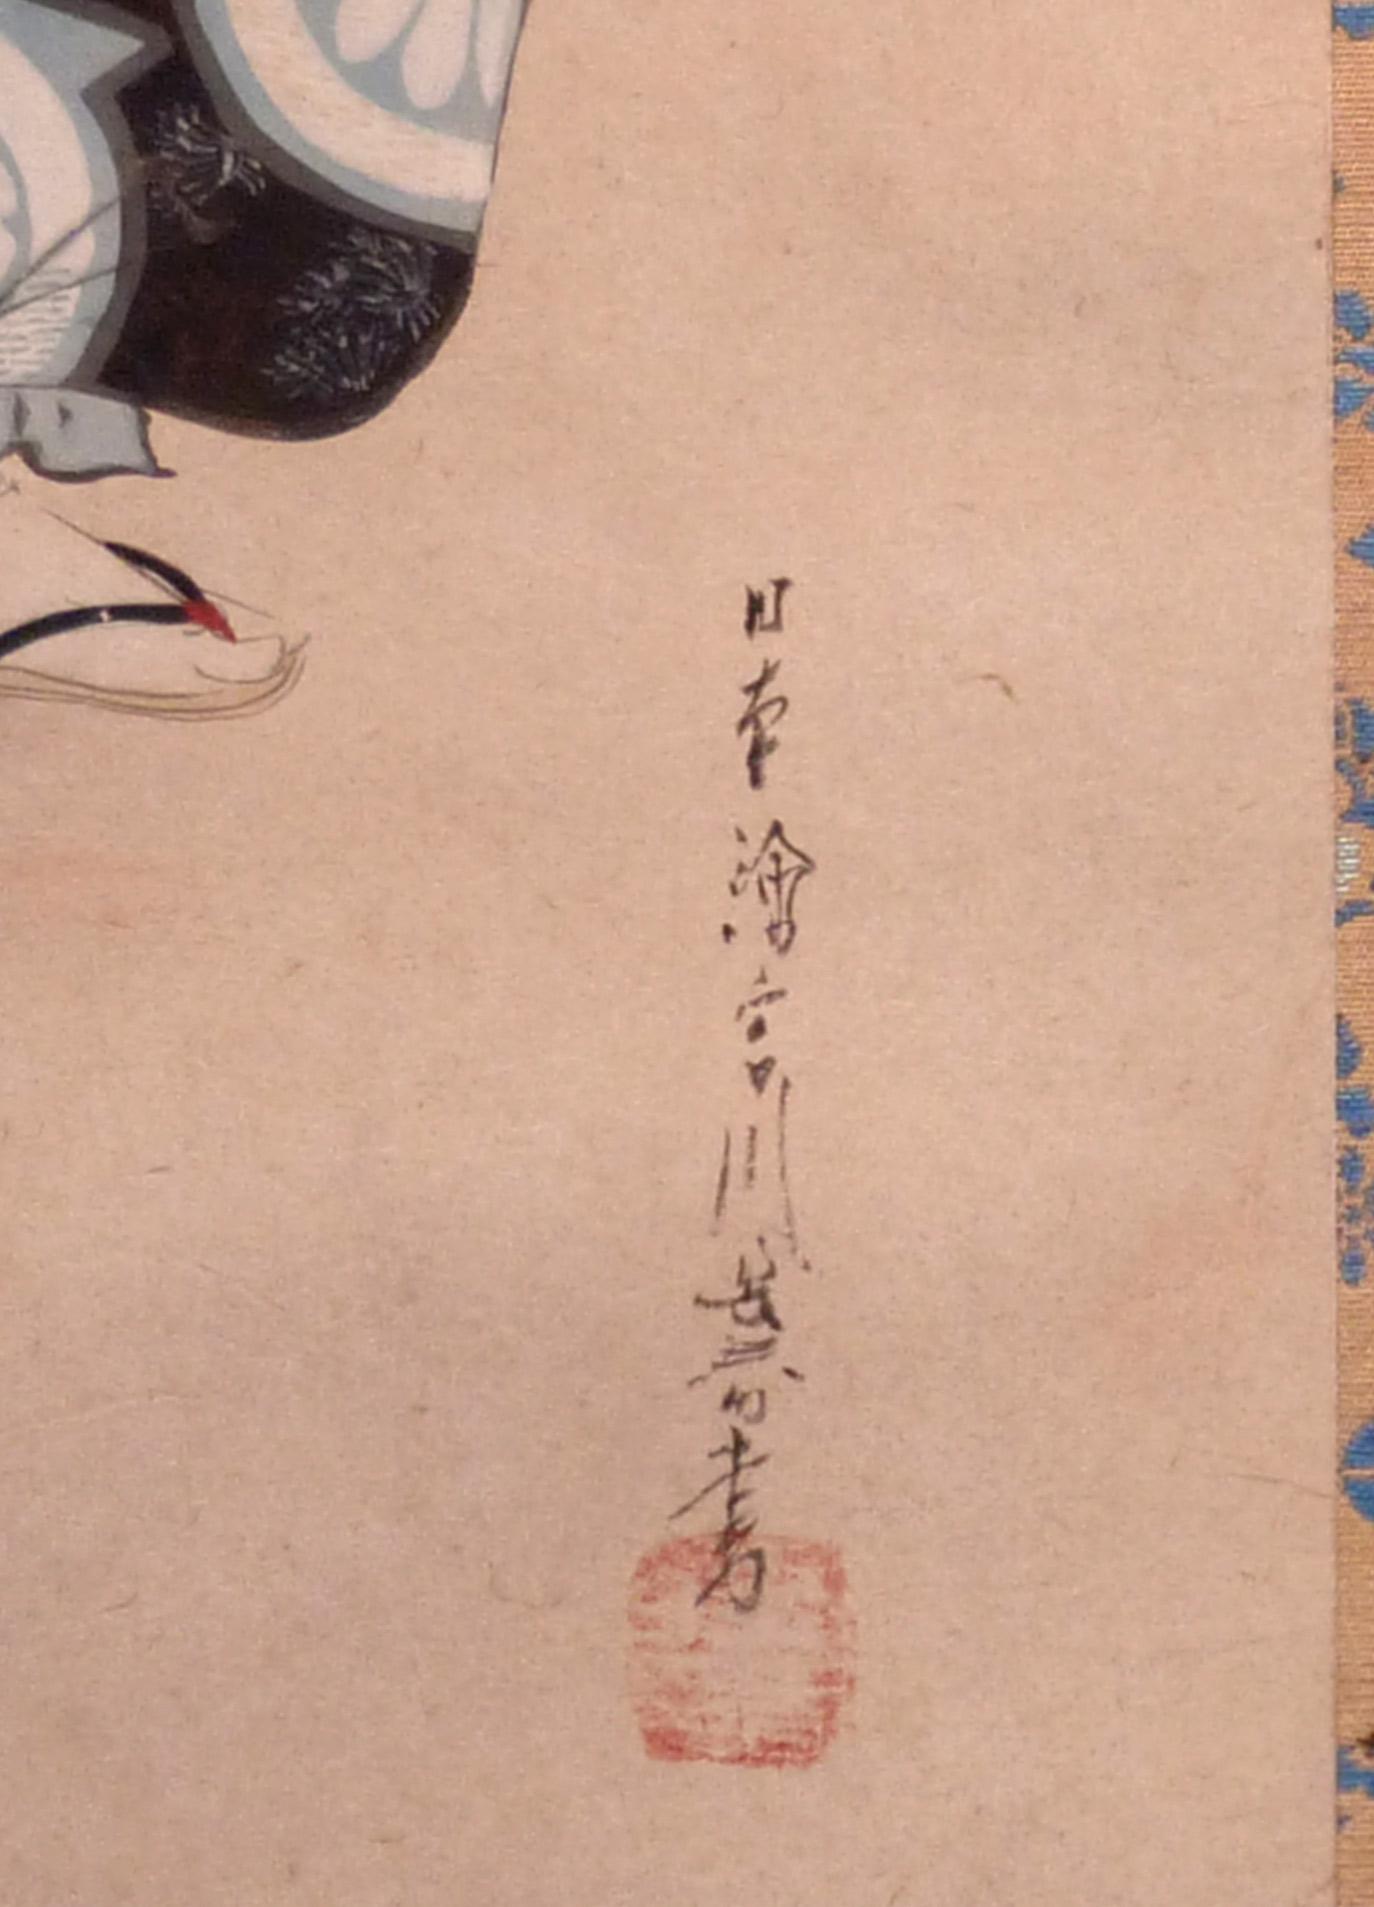 日本繪宮川長春書